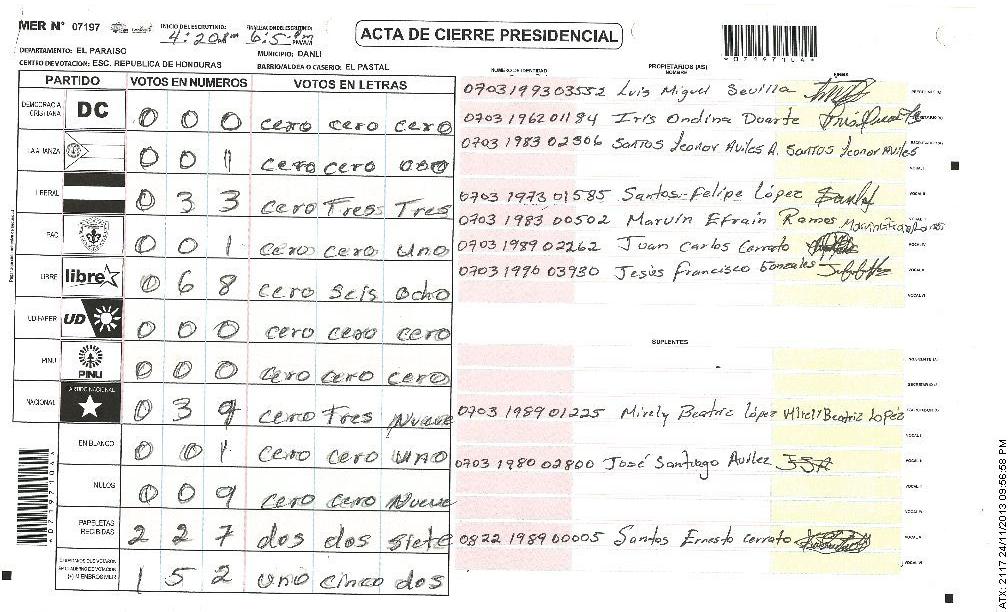 MER N° 07197
INICIO DEL ESCRUTINIO:
4:20
FINALIZACION DEL ESCRUTINIO:
ACTA DE CIERRE PRESIDENCIAL
DEPARTAMENTO: EL PARAISO
MUNICIPIO: DANLI
CENTRO DE VOTACION: ESC. REPUBLICA DE HONDURAS
BARRIO/ALDEA O CASERIO: EL PASTAL
PARTIDO VOTOS EN NUMEROS VOTOS EN LETRAS
DEMOCRACIA CRISTIANA DC 0 0 0 cero cero cero
ALIANZA 0 0 1 cero cero uno
LIBERAL 0 3 3 cero Tres Tres
PAC 0 0 1 cero cero uno
LIBRE libre 0 6 8 cero Seis Ocho
UD FAPER UD 0 0 0 cero cero cero
PINU PINU 0 0 0 cero cero cero
NACIONAL 0 3 9 cero Tres Nueve
EN BLANCO 0 0 1 cero cero uno
NULOS 0 0 9 cero cero Nueve
PAPELETAS RECIBIDAS 2 2 7 dos dos siete
1 5 2 uno cinco dos
NUMERO DE IDENTIDAD
PROPIETARIOS (AS)
NOMBRE
FIRMA
0703199303552 Luis Miguel Sevilla
0703 1962 01184 Iris Ondina Duarte
0703 1983 02306 Santos Leonor Aviles A. Santos Leonor Aviles
0703 1973 01585 Santos Felipe López
0703 1983 00502 Marvin Efrain Ramos
0703 1989 02262 Juan Carlos Cerrato
0703 1990 03930 Jesús Francisco Gonzales
SUPLENTES
0703 1989 01225 Mirely Beatriz López Mireli Beatriz López
0703 1980 02800 José Santiago Avilez JSA
0822 1989 00005 Santos Ernesto Cerrato
*0719710A*
ATX: 2117 24/11/2013 09:56:58 PM